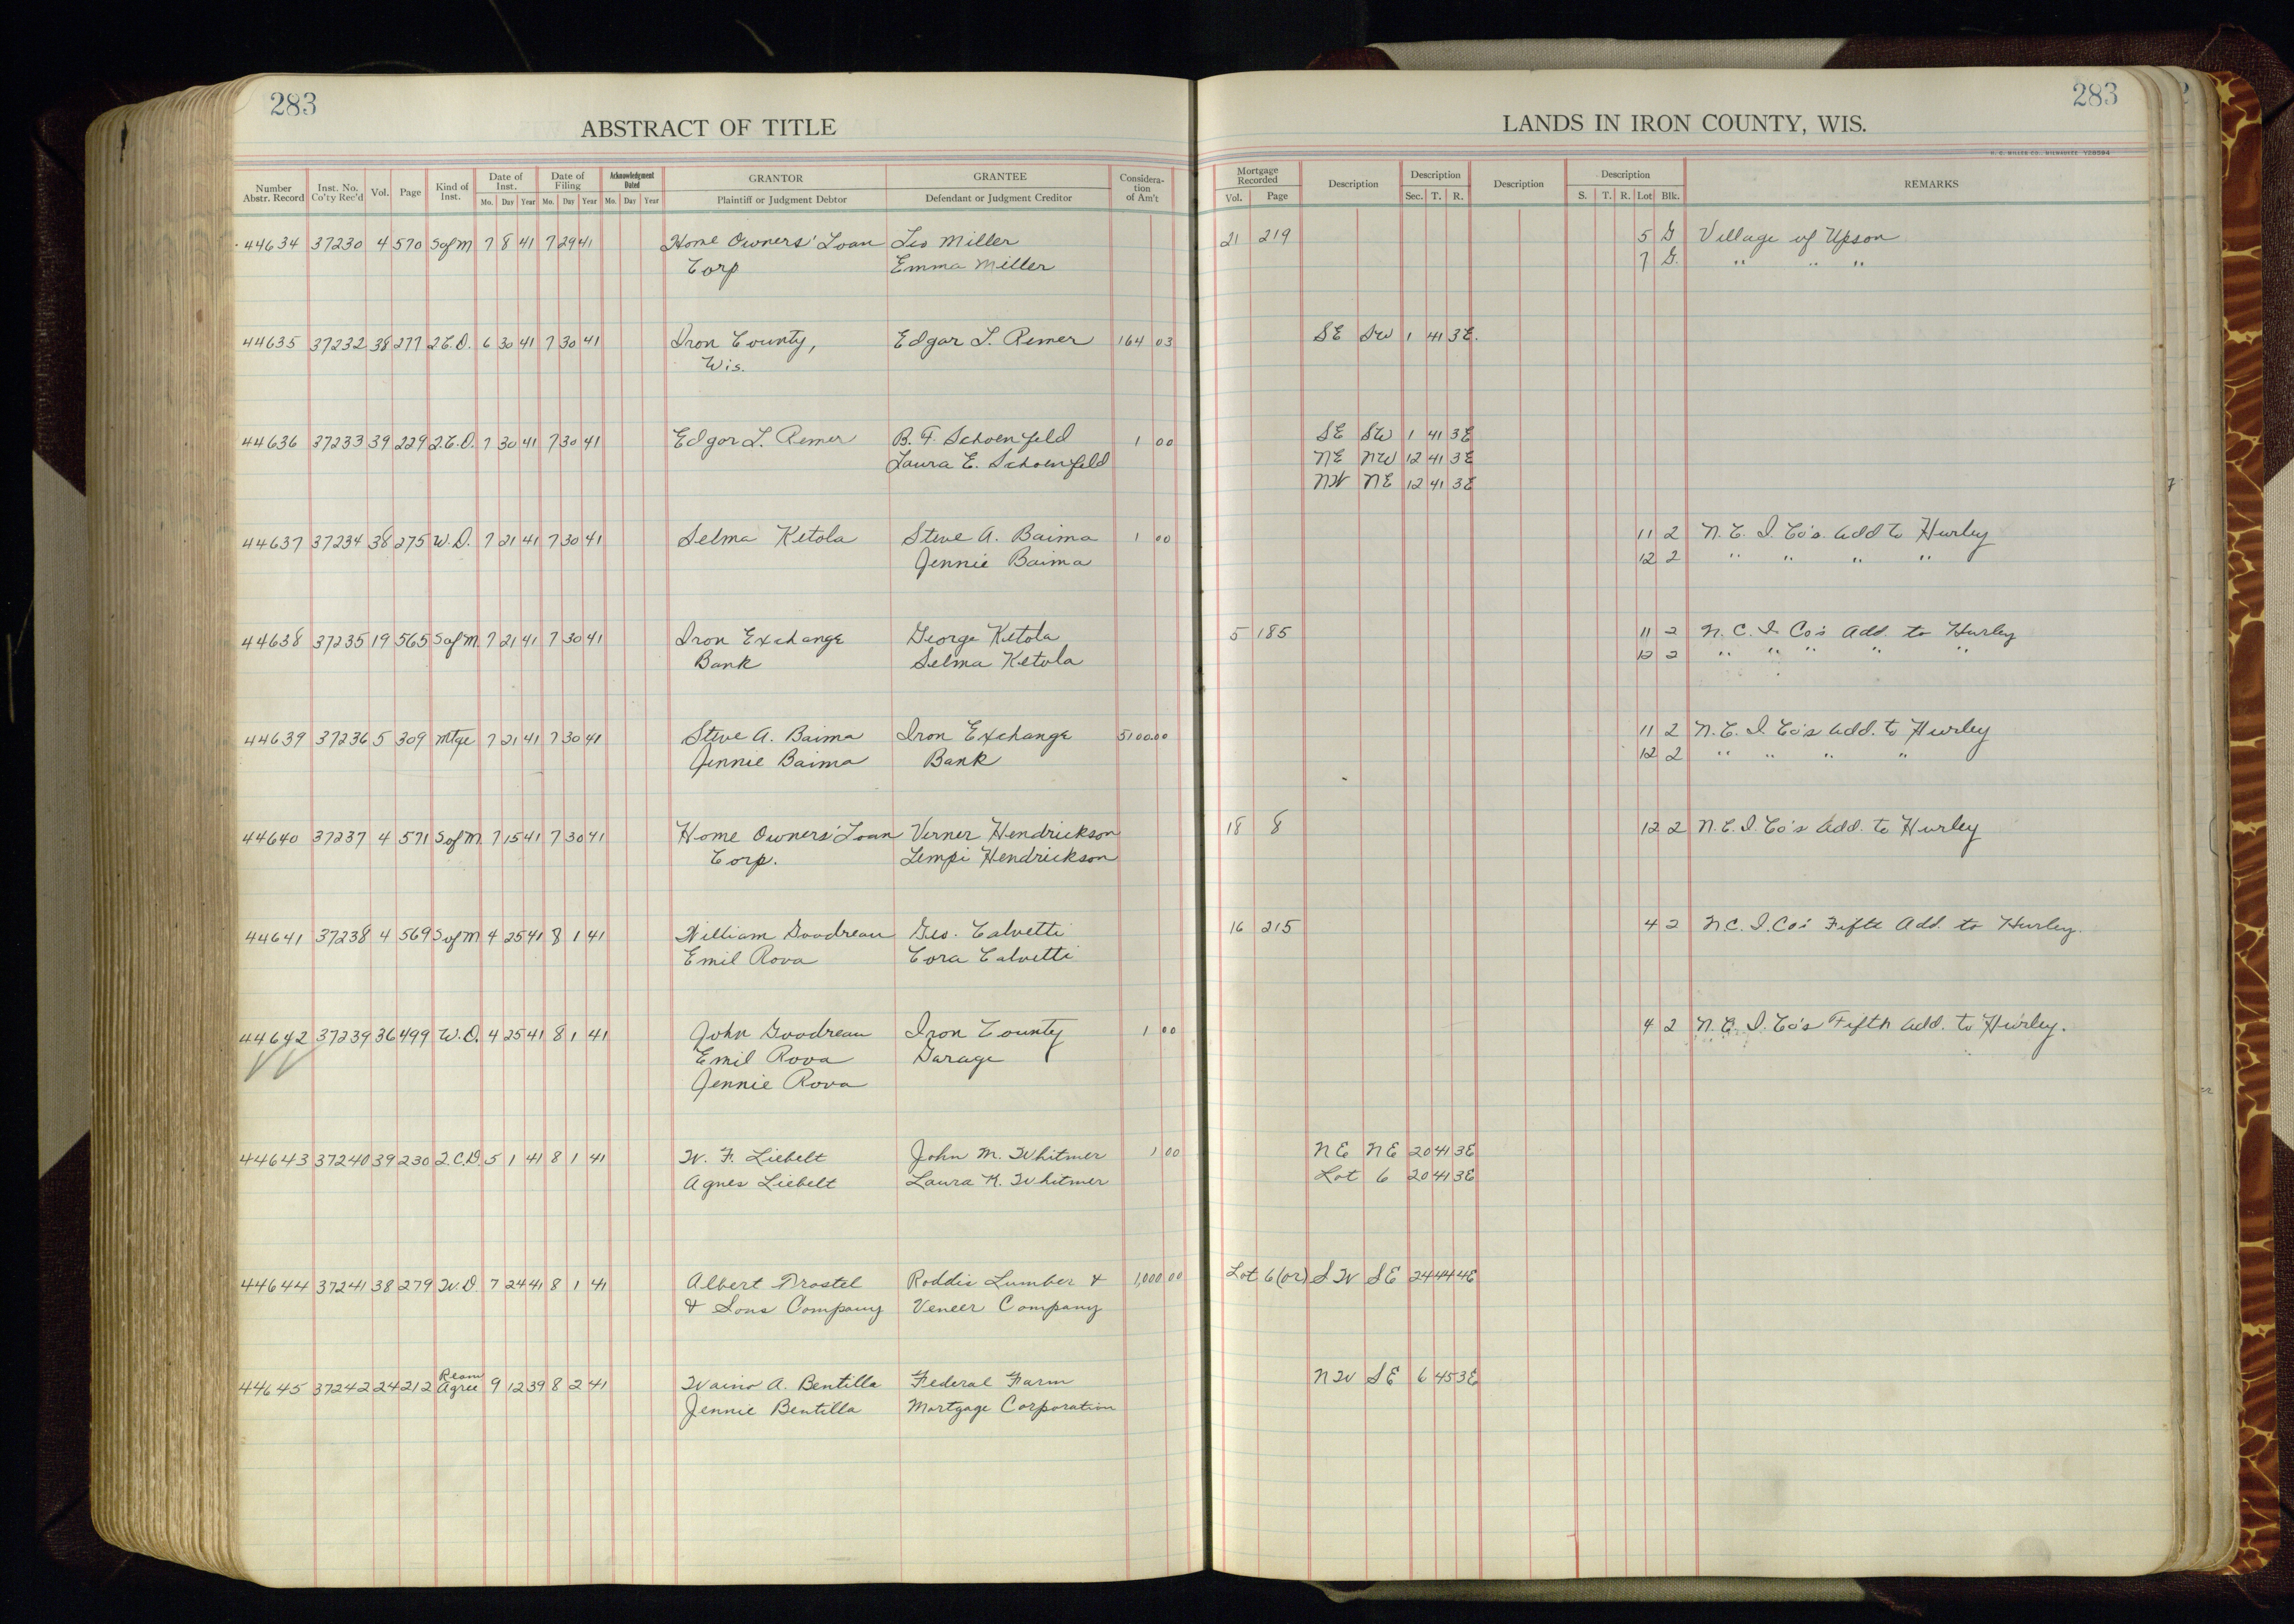 283
283
ABSTRACT OF TITLE
LANDS IN IRON COUNTY, WIS.
H. C. MILLER CO. MILWAUKEE
Number Abstr. Record Inst. No. Co'ty Rec'd Vol. Page Kind of Inst. Date of Inst. Mo. Day Year Date of Filing Mo. Day Year Acknowledgment Dated Mo. Day Year GRANTOR Plaintiff or Judgment Debtor GRANTEE Defendant or Judgment Creditor Consideration of Am't Mortgage Recorded Vol. Page Description Description Sec. T. R. Description Description S. T. R. Lot Blk. REMARKS
44634 37230 4 570 S of M 7 8 41 7 29 41 Home Owners' Loan Leo Miller 21 219 5 G Village of Upson
Corp Emma Miller 7 G. " " "
44635 37232 38 277 2.C.D. 6 30 41 7 30 41 Iron County, Edgar L. Remer 164 03 SE SW 1 41 3E.
Wis.
44636 37233 39 229 2.C.D. 7 30 41 7 30 41 Edgar L. Remer B. F. Schoenfeld 1 00 SE SW 1 41 3E
Laura E. Schoenfeld NE NW 12 41 3E
NW NE 12 41 3E
44637 37234 38 275 W.D. 7 21 41 7 30 41 Selma Ketola Steve A. Baima 1 00 11 2 N. C. I. Co's. Add to Hurley
Jennie Baima 12 2 " " " "
44638 37235 19 565 S of M. 7 21 41 7 30 41 Iron Exchange George Ketola 5 185 11 2 N. C. I. Co's Add. to Hurley
Bank Selma Ketola 12 2 " " " " "
44639 37236 5 309 Mtge 7 21 41 7 30 41 Steve A. Baima Iron Exchange 5100.00 11 2 N. C. I. Co's Add. to Hurley
Jennie Baima Bank 12 2 " " " "
44640 37237 4 571 S of M. 7 15 41 7 30 41 Home Owners' Loan Verner Hendrickson 18 8 12 2 N. C. I. Co's Add. to Hurley
Corp. Lempi Hendrickson
44641 37238 4 569 S of M 4 25 41 8 1 41 William Goodreau Geo. Calvetti 16 215 4 2 N. C. I. Co's Fifth Add. to Hurley.
Emil Rova Cora Calvetti
44642 37239 36 499 W.D. 4 25 41 8 1 41 John Goodreau Iron County 1 00 4 2 N. C. I. Co's Fifth Add. to Hurley.
Emil Rova Garage
Jennie Rova
44643 37240 39 230 2.C.D. 5 1 41 8 1 41 W. F. Liebelt John M. Whitmer 1 00 NE NE 20 41 3E
Agnes Liebelt Laura M. Whitmer Lot 6 20 41 3E
44644 37241 38 279 W.D 7 24 41 8 1 41 Albert Trostel Roddis Lumber & 1,000 00 Lot 6 (or) SW SE 24 44 4E
& Sons Company Veneer Company
44645 37242 24 212 Ream Agree 9 12 39 8 2 41 Waino A. Bentilla Federal Farm NW SE 6 45 3E
Jennie Bentilla Mortgage Corporation